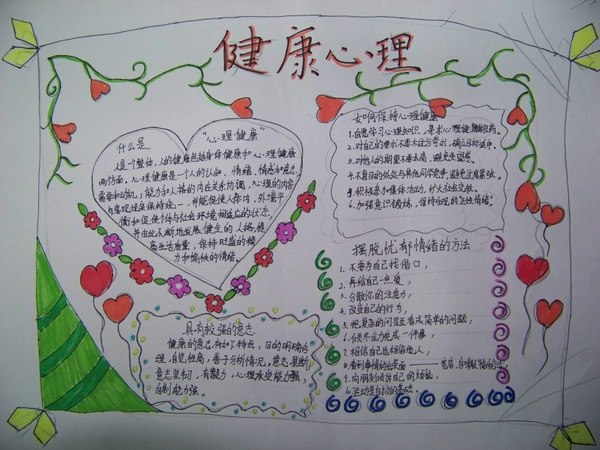 健康心理
什么是
“心理健康”
人是个整体,人的健康包括身体健康和心理健康
两方面。心理健康是一个人的认知、情绪、情感和意志、
需要和动机、能力和人格的内在关系协调,心理的内容
与客观现实保持统一,并能促使人体内、外环境平
衡和促使个体与社会环境相适应的状态,
并由此不断地发展健全的人格,提
高生活质量,保持旺盛的精
力和愉快的情绪。
如何保持心理健康
1.自觉学习心理知识,寻求心理健康
2.对自己的要求不要太过分苛求,确立目标适中。
3.对他人的期望不要太高,避免失望感。
4.不盲目的处处与其他同学竞争,避免过度紧张。
5.积极参加集体活动,扩大社会交往。
6.加强意识锻炼,保持乐观的
摆脱忧郁情绪的方法
1.不要为自己找借口,
2.再给自己一点爱,
3.分散你的注意力;
4.改变自己的行为,
5.把复杂的问题看成简单的问题;
6.每天尽全力完成一件事,
7.相信自己也相信他人,
8.看到事情的光荣面
9.向朋友倾诉自己的烦恼,
具有较强的意志
健康的意志有如下特点,目的明确合
理,自觉性高;善于分析情况,意志果断;
意志坚韧,有毅力,心理承受能力强,
自制能力强。